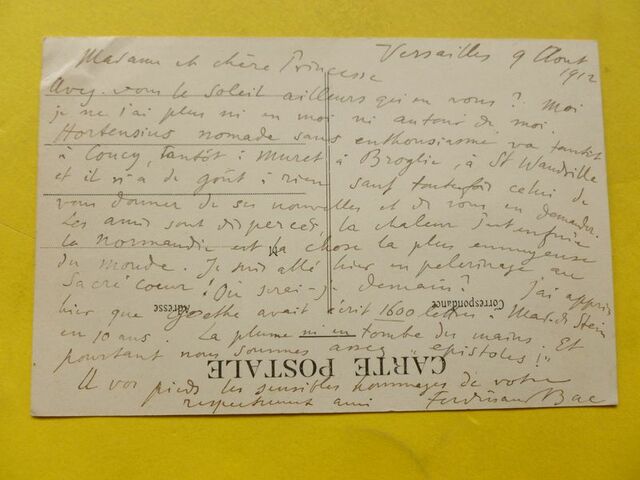 Versailles 9 Aout
1912
Madame et chère Princesse
Avez-vous le soleil ailleurs qu'en vous? Moi
je ne l'ai plus ni en moi ni autour de moi.
Hortensius nomade sans enthousiasme va tantôt
à Coucy, tantôt à Muret à Broglie, à St Wandrille
et il n'a de goût à rien sauf toutefois celui de
vous donner de ses nouvelles et de vous en demander.
Les amis sont dispercés, la chaleur s'est enfuie
la Normandie est la chose la plus ennuyeuse
du monde. Je suis allé hier en pelerinage au
Sacré Coeur! Où serai-je demain? J'ai appris
hier que Goethe avait écrit 1600 lettres à Mad. de Stein
en 10 ans. La plume ni en tombe des mains. Et
pourtant nous sommes assez "epistoles!"
A vos pieds les sensibles hommages de votre
respectueux ami Ferdinand Bac
Correspondance
Adresse
CARTE POSTALE